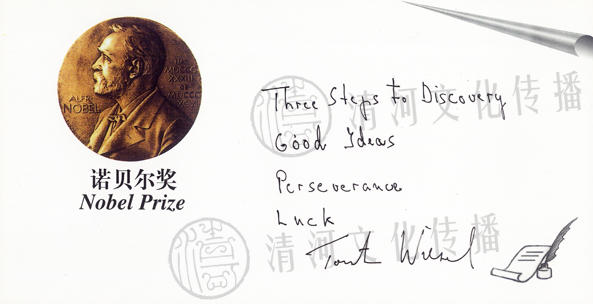 ALFR.
NOBEL
诺贝尔奖
Nobel Prize
Three Steps to Discovery
Good Ideas
Perseverance
Luck
清河文化传播
清河文化传播